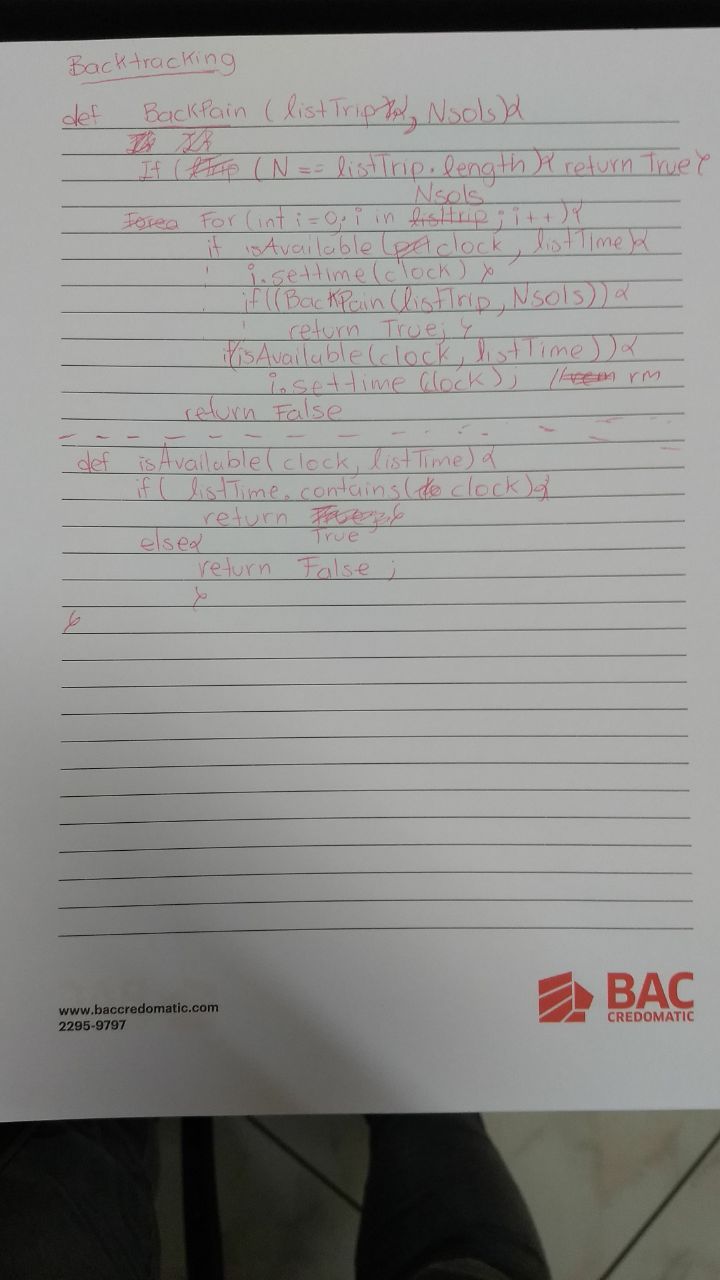 Backtracking
def BackPain (listTrip, Nsols){
If ( (N == listTrip.length){ return True}
Nsols
For (int i=0; i in ; i++){
if isAvailable (clock, listTime){
i.settime(clock) }
if((BackPain(listTrip, Nsols)){
return True; }
if(isAvailable(clock, listTime)){
i.settime(clock); // rm
return False
def isAvailable( clock, listTime){
if( listTime.contains( clock){
return
True
else{
return False ;
}
}
www.baccredomatic.com
2295-9797
BAC
CREDOMATIC